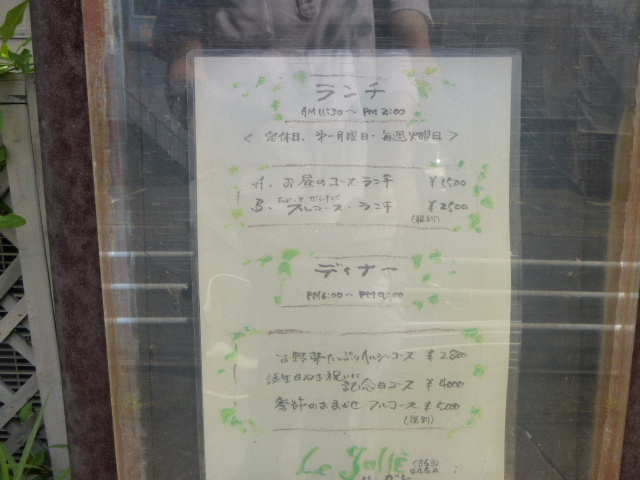 ランチ
AM 11:30 〜 PM 2:00
< 定休日、第一月曜日・毎週火曜日 >
A. お昼のコース・ランチ ¥1500
B. フルコース・ランチ ¥2500
(税別)
ディナー
PM 6:00 〜 PM 9:00
お野菜たっぷりヘルシーコース ¥2800
誕生日やお祝いに
記念日コース ¥4000
季節のおまかせ フルコース ¥5000
(税別)